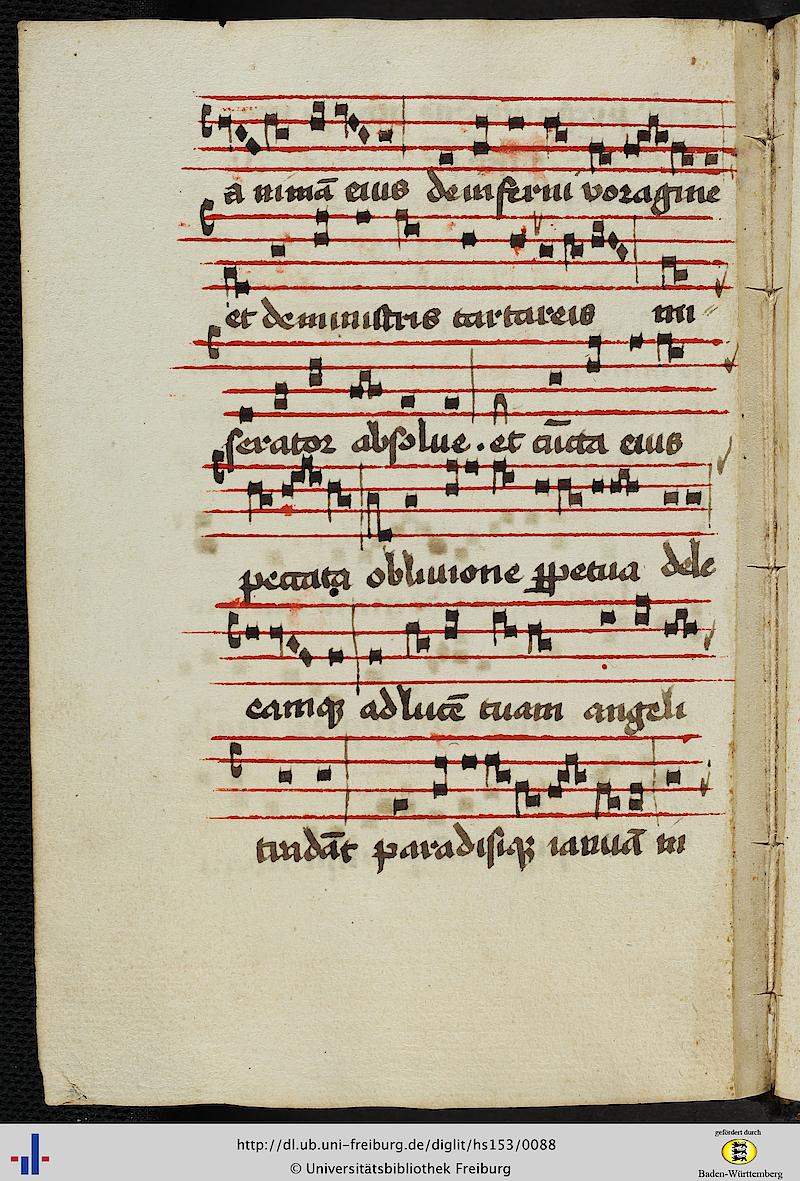 a nimā eius de inferni voragine
et de ministris tartareis mi
serator absolue . et cūcta eius
peccata obliuione ꝑpetua dele
eamqꝫ ad lucē tuam angeli
tradāt paradisiqꝫ ianuā in
http://dl.ub.uni-freiburg.de/diglit/hs153/0088
© Universitätsbibliothek Freiburg
gefördert durch
Baden-Württemberg